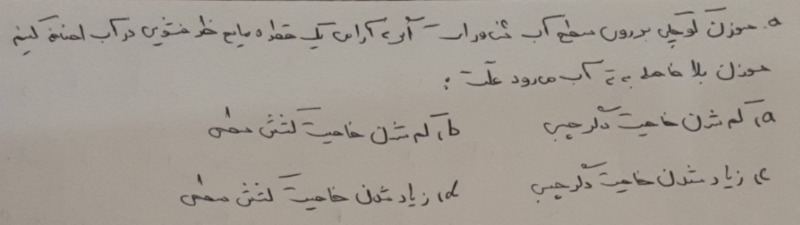 ۵. سوزن کوچکی بر روی سطح آب شناور است اگر به آرامی یک قطره مایع ظرفشویی در آب اضافه کنیم
سوزن بلافاصله به ته آب می‌رود علت :
a) کم شدن خاصیت دگرچسبی b) کم شدن خاصیت کشش سطحی
c) زیاد شدن خاصیت دگرچسبی d) زیاد شدن خاصیت کشش سطحی